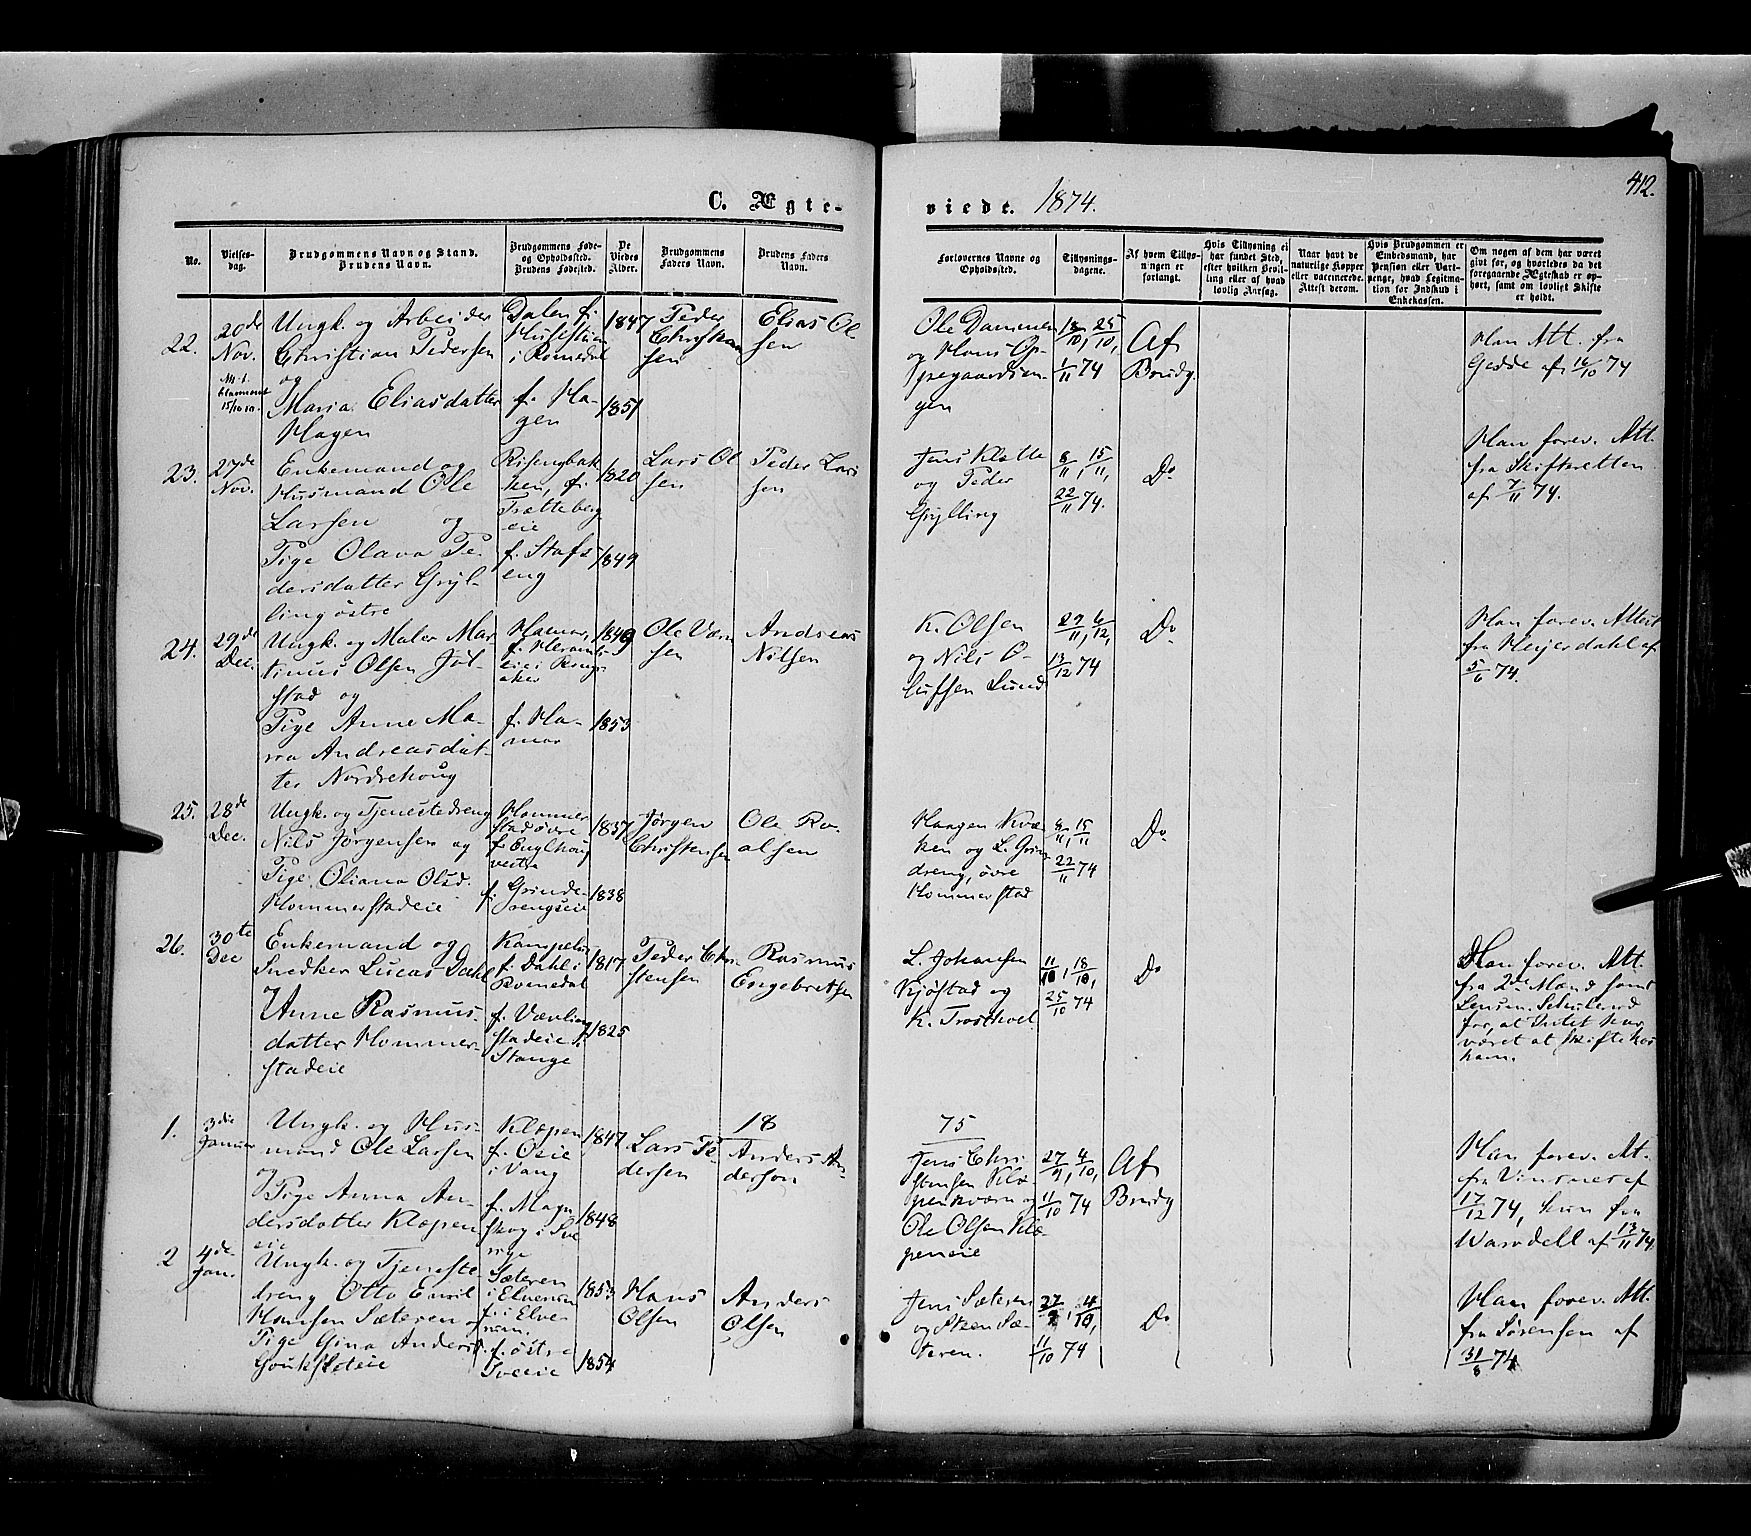 C. Ægte-
viedt. 1874.
412.
No.
Vielses-
dag.
Brudgommens Navn og Stand.
Brudens Navn.
Brudgommens Føde-
og Opholdssted.
Brudens Fødested.
De
Viedes
Alder.
Brudgommens
Faders Navn.
Brudens Faders
Navn.
Forlovernes Navne og
Opholdssted.
Tillysnings-
dagene.
Af hvem Tillys-
ningen er
forlangt.
Hvis Tillysning ei
har fundet Sted,
efter hvilken Bevil-
ling eller af hvad
lovlig Aarsag.
Naar havt de
naturlige Kopper
eller vaccinerede.
Attest derom.
Hvis Brudgommen er
Embedsmand, har
Pension eller Vart-
penge, hvad Legitma-
tion for Indskud i
Enkekassen.
Om nogen af dem har været
gift før, og hvorledes da det
foregaaende Ægteskab er op-
hørt, samt om lovligt Skifte
er holdt.
22.
20de
Nov.
Ungk. og Arbeider
Christian Pedersen
og
Maria Eliasdatter
Hagen
Dalen f.
i Romedal
f. Ha-
gen
1847
1851
Peder
Christian
sen
Elias Ol
sen
Ole Dammen
og Hans Op-
pegaardsen-
gen
18/10, 25/10,
1/11 74
Af
Brudg.
Han Att. fra
Gedde af 16/10 74
23.
27de
Nov.
Enkemand og
Husmand Ole
Larsen og
Pige Olava Pe-
dersdatter Gryl-
ling østre
Risengbak
ken, f.
Trætteberg
eie
f. Stafs
eng
1820
1849
Lars Ol
sen
Peder Lars
sen
Jens Klætte
og Peder
Grylling
8/11, 15/11,
22/11 74.
Do
Han forev. Att.
fra Skifteretten
af 7/11 74.
24.
29de
Dec.
Ungk. og Maler Mar
tinus Olsen Jøl-
stad og
Pige Anne Ma-
ria Andreasdat-
ter Nordrehoug
Hamar,
eie i Rings
aker
f. Ha-
mar
1849
1853
Ole Værn
sen
Andreas
Nilsen
K. Olsen
og Nils O-
lufsen Lund
29/11, 6/12,
13/12 74
Do
Han forev. Attest
fra Heijerdahl af
5/6 74.
25.
28de
Dec.
Ungk. og Tjenestedreng
Nils Jørgensen og
Pige Oliana Olsd.
Hommerstadeie
Hommer
stad øvre
vestre
f. Grinde-
rengseie
1837
1838
Jørgen
Christensen
Ole Ro-
alsen
Haagen Kvæ-
ken og L. Grin
dreng, øvre
Hommerstad
8/11, 15/11
22/11 74
Do
26.
30te
Dec
Enkemand og
Snedker Lucas Dahl
og
Anne Rasmus-
datter Hommer-
stadeie
f. Dahl i
Romedal
f. Vævlin
stadeie i
Stange
1817
1825
Peder Chri-
stensen
Rasmus
Engebretsen
L. Johansen
Kjøstad og
K. Trosthoel
11/10, 18/10,
25/10 74
Do
Han forev. Att.
fra 2de Mænd samt
for, at Intet har
været at skifte hos
ham.
18
75
1.
3die
Januar
Ungk. og Hus-
mand Ole Larsen
og
Pige Anna An-
dersdatter Klæpen
eie
Klæpen
f. Osie
i Vang
f. Magn
skog i Sve
rige
1847
1848
Lars Pe-
dersen
Anders An-
derson
Jens Chri-
stensen Klæ-
penkværn og
Ole Olsen Klæ
peneie
27/9, 4/10,
11/10 74
Af
Brudg
Han forev. At.
fra Vinsnes af
17/12 74, hun fra
Warodell af 13/11 74.
2
4de
Jan.
Ungk. og Tjeneste
dreng Otto Emil
Hansen Sæteren og
Pige Gina Anders
Sæteren
i Elverum
f. i Elve
rum.
f. østre
Sveeie
1853
1854
Hans
Olsen
Anders
Olsen
Jens Sæteren
og Sæ-
teren.
27/9, 4/10,
11/10 74
Do
Han forev. Att.
fra Sørensen af
31/8 74